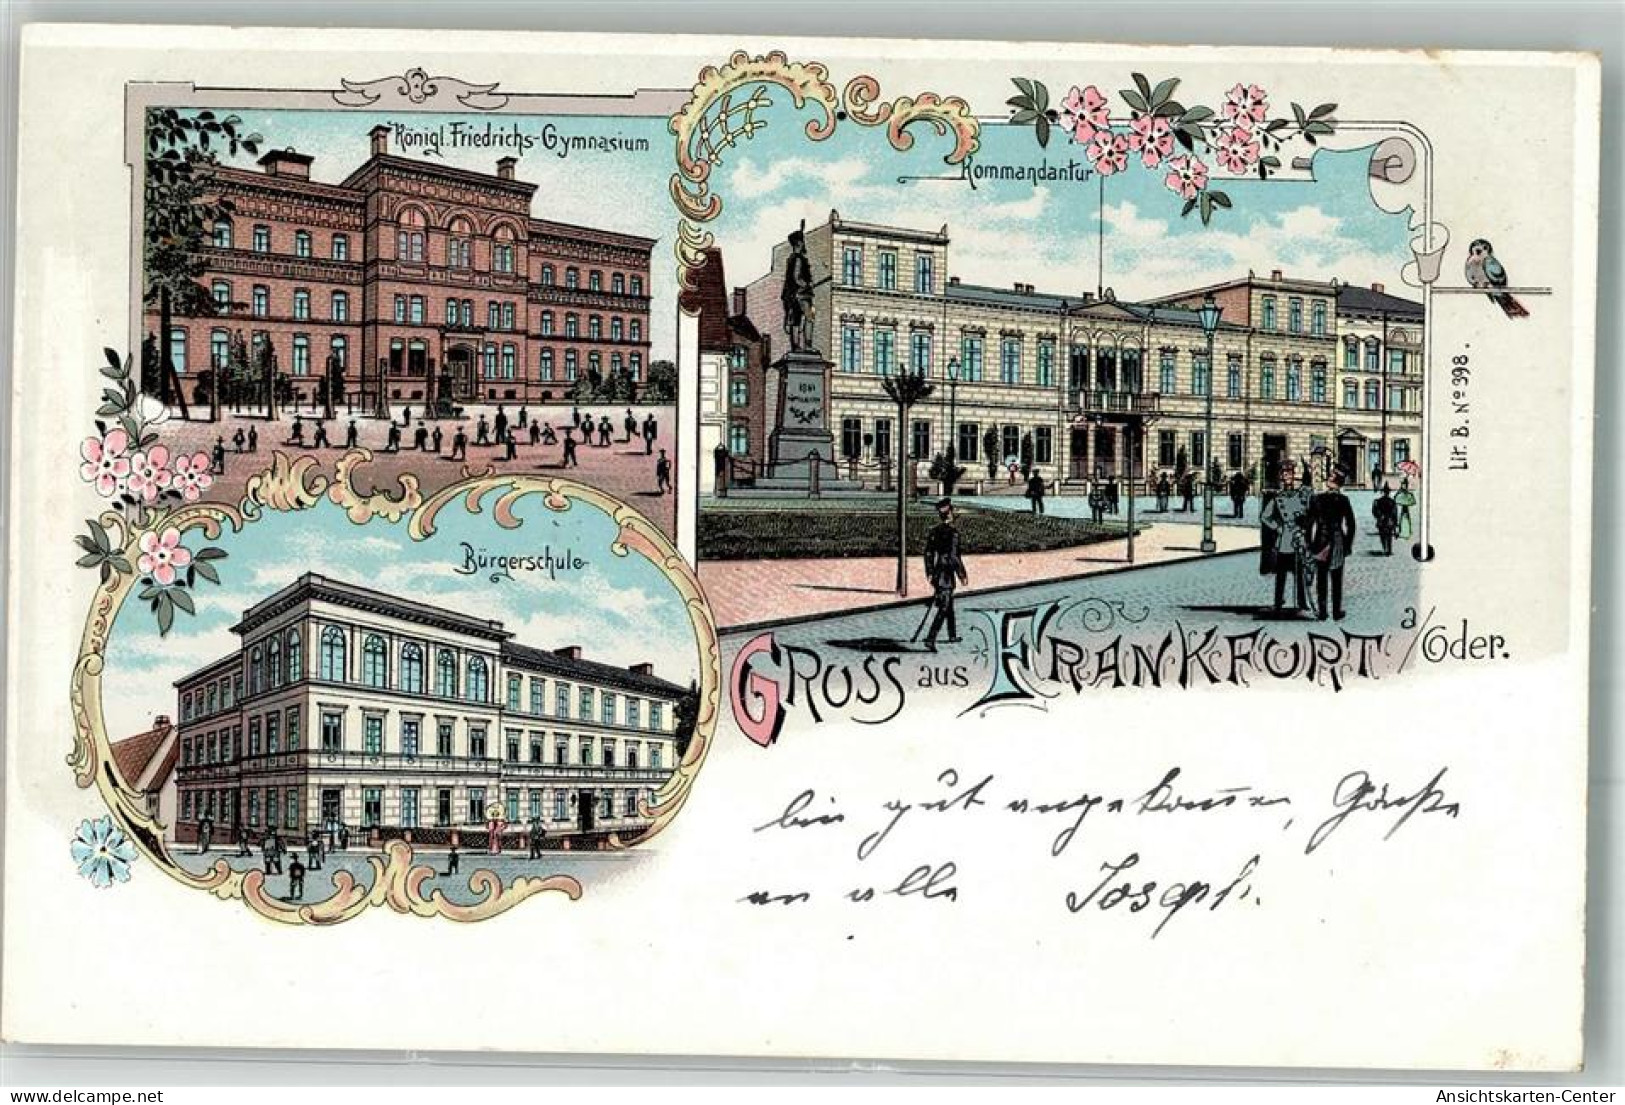 Königl. Friedrichs-Gymnasium
Kommandantur
Bürgerschule
Lit. B. No 398.
1861
GRUSS aus FRANKFURT a/Oder.
bin gut angekommen, Grüße
an alle Joseph.
Ansichtskarten-Center